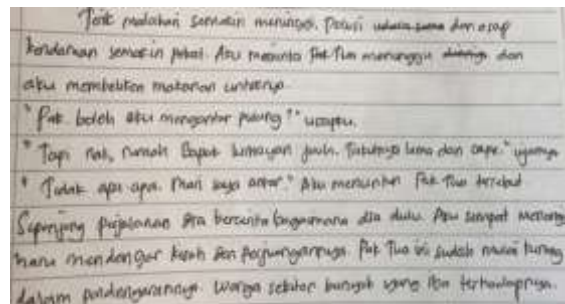 Terik matahari semakin meninggi. Polusi dan asap
kendaraan semakin pekat. Aku meminta Pak Tua menunggu dan
aku membelikan makanan untuknya.
"Pak, boleh aku mengantar pulang?" ucapku.
"Tapi nak, rumah Bapak lumayan jauh. Takutnya lama dan cape." ujarnya
"Tidak apa-apa. Mari saya antar." Aku menuntun Pak Tua tersebut
Sepanjang perjalanan dia bercerita bagaimana dia dulu. Aku sempat menangis
haru mendengar kisah dan perjuangannya. Pak Tua ini sudah mulai kurang
dalam pendengarannya. Warga sekitar banyak yang iba terhadapnya.